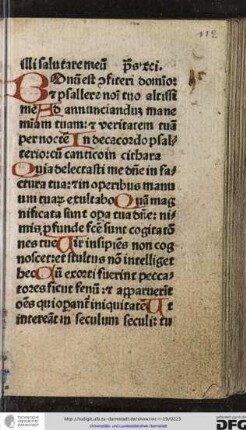 112
illi salutare meū p̄s xci.
Bonū est ꝯfiteri domino:
et psallere noī tuo altissi
me Ad annunciandū mane
mīam tuam: et veritatem tuā
per noctē In decacordo psal-
terio: cū cantico in cithara
Quia delectasti me dn̄e in fa-
ctura tua: et in operibus manu
um tuaꝝ exultabo Quā mag
nificata sunt opa tua dn̄e: ni-
mis ꝓfunde fc̄e sunt cogitatō
nes tue Uir insipiēs non cog
noscet: et stultus nō intelliget
hec Cū exorti fuerint pecca-
tores sicut fenū: et apparuerīt
oēs qui opant̄ iniquitatē Ut
intereāt in seculum seculi: tu
http://tudigit.ulb.tu-darmstadt.de/show/inc-iii-15/0223
Universitäts- und Landesbibliothek Darmstadt
DFG